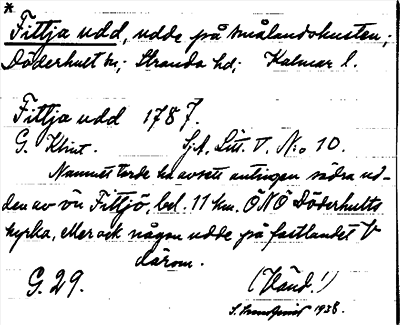 *
Fittja udd, udde på smålandskusten;
Döderhult sn; Stranda hd; Kalmar l.
Fittja udd 1787.
G. Klint. Sj.A. Litt. V. N:o 10.
Namnet torde ha avsett antingen södra ud-
den av ön Fittjö, bel. 11 km. ÖNÖ Döderhults
kyrka, eller ock någon udde på fastlandet V
därom.
G. 29. (Vänd!)
1938.